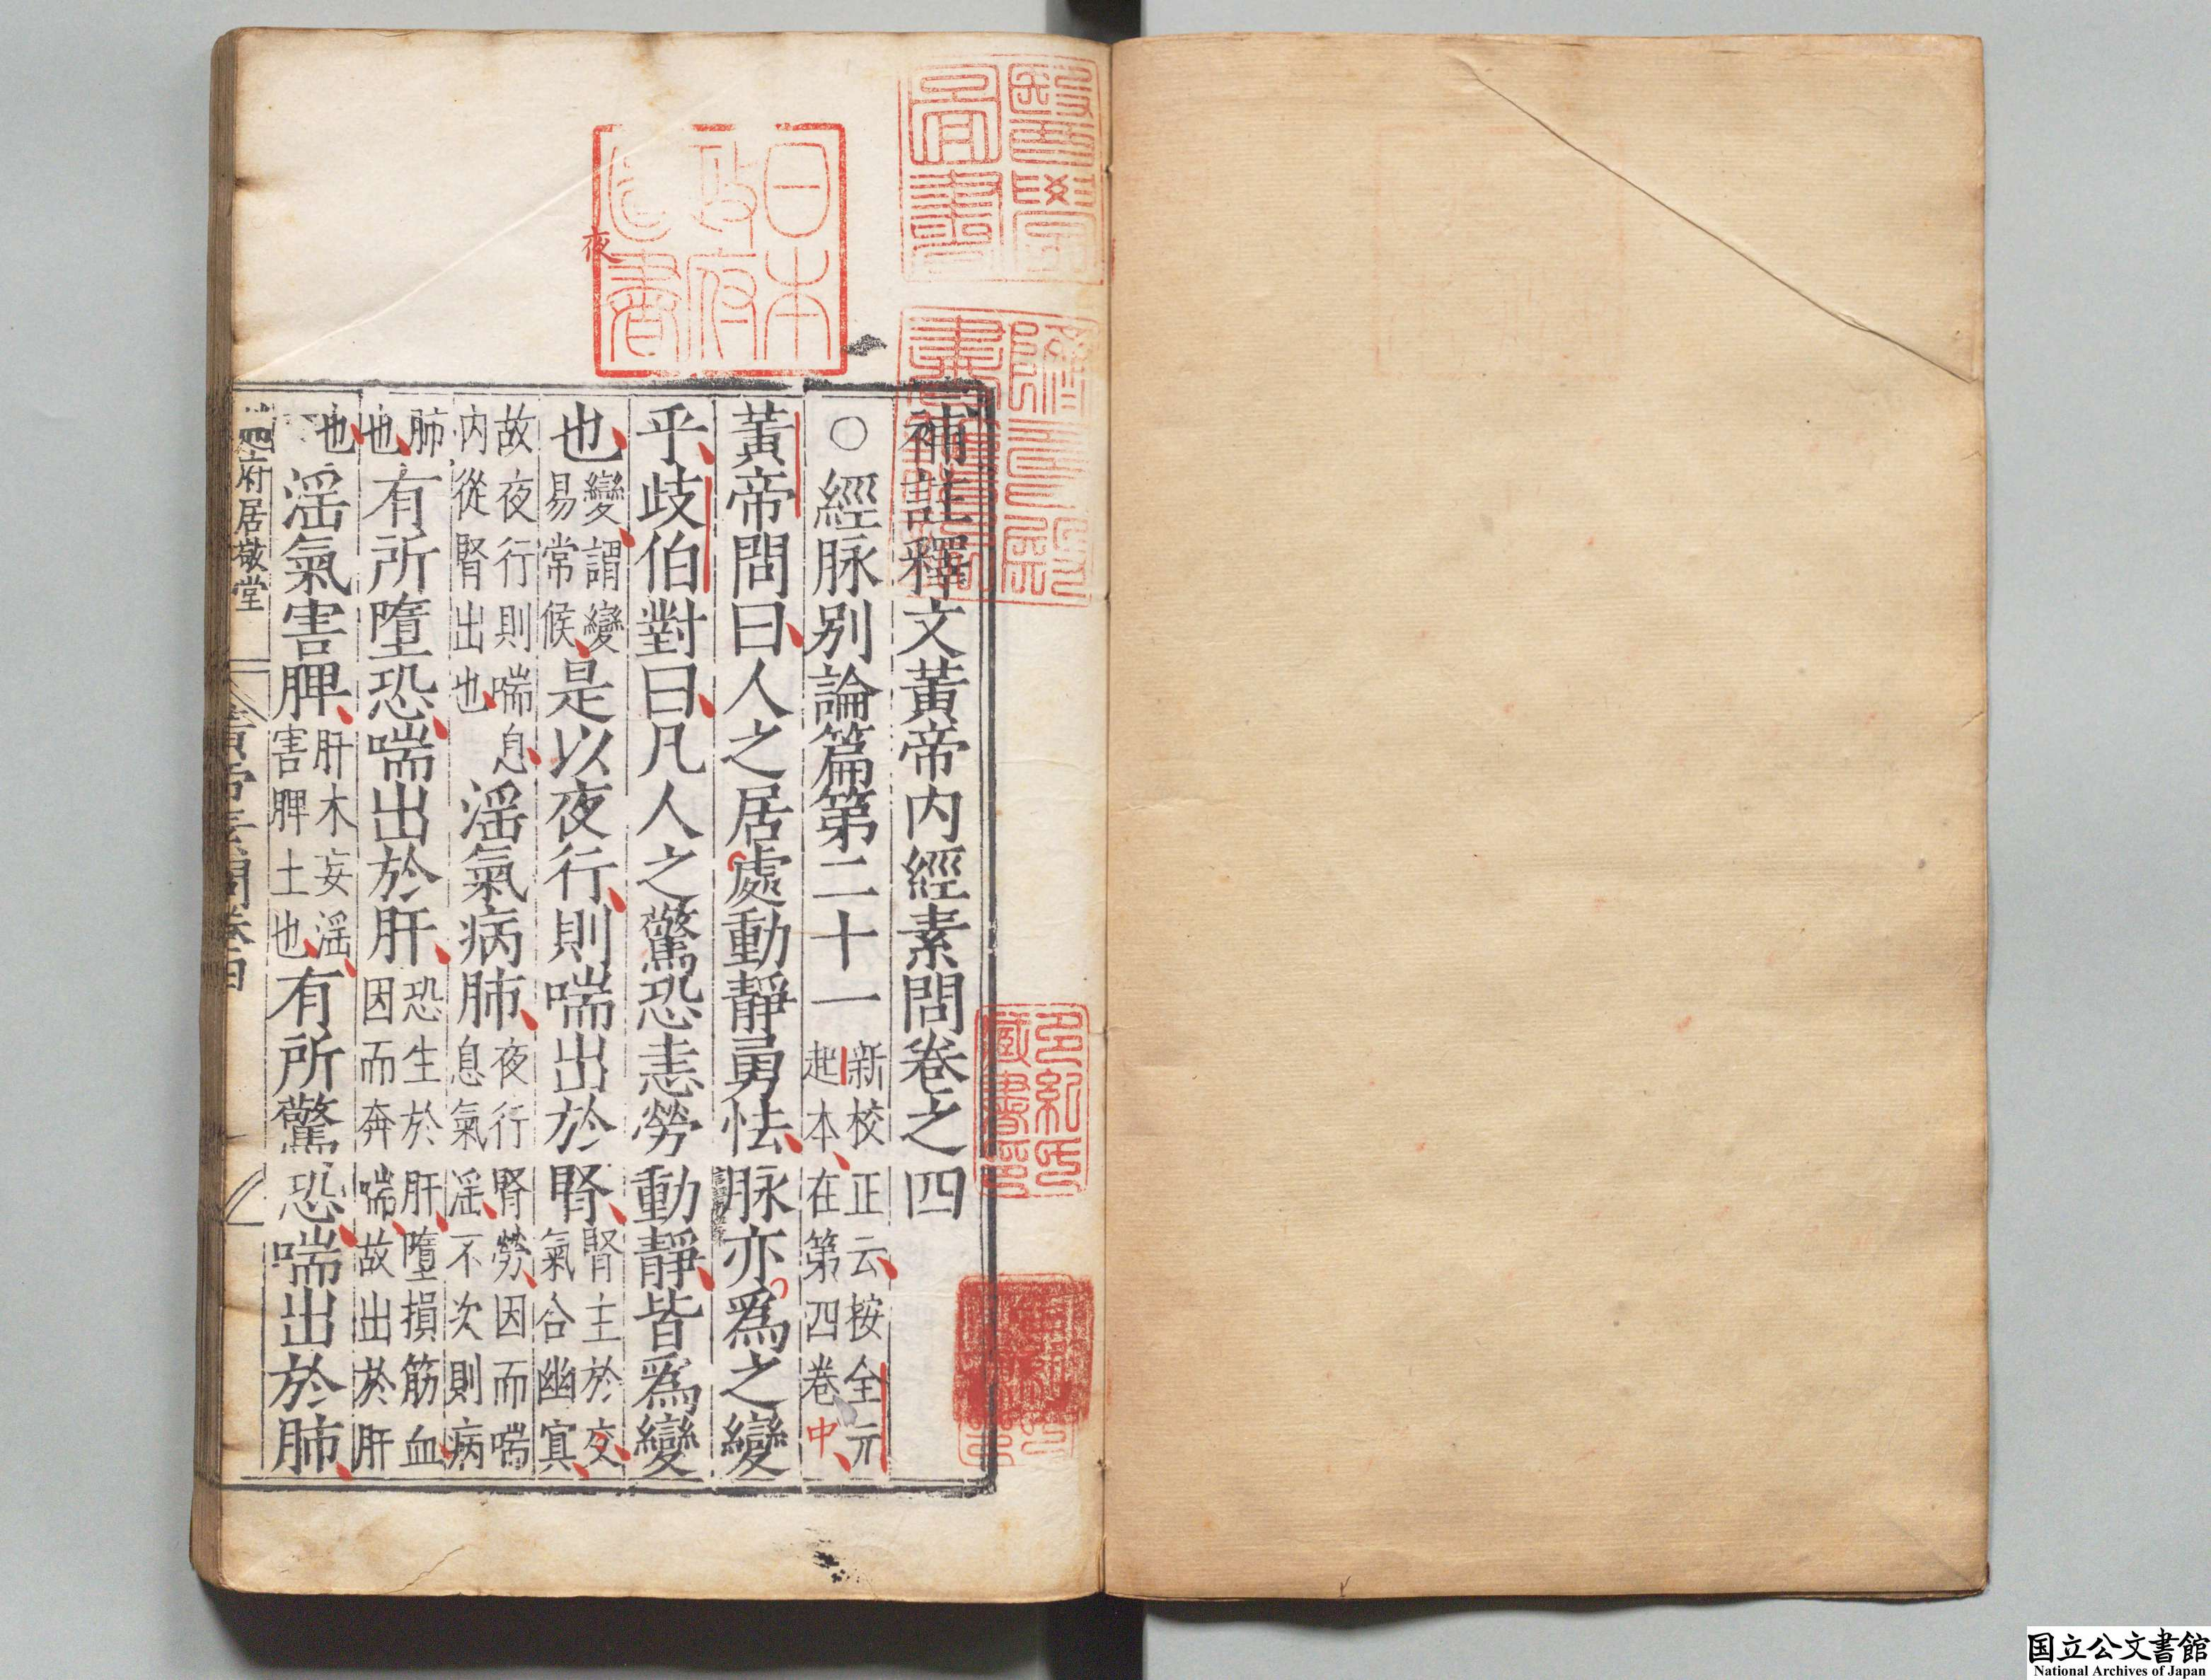 補註釋文黃帝內經素問卷之四
○經脉别論篇第二十一新校正云按全元起本在第四卷中
黃帝問曰人之居處動靜勇怯脉亦爲之變
乎歧伯對曰凡人之驚恐恚勞動靜皆爲變
也變謂變易常候是以夜行則喘出於腎腎主於夜氣合幽寞
故夜行則喘息內從腎出也淫氣病肺夜行腎勞因而喘息氣淫不次則病
肺也有所墮恐喘出於肝恐生於肝墮損筋血因而奔喘故出於肝
也淫氣害脾肝木妄淫害脾土也有所驚恐喘出於肺
府居敬堂
黃帝素問卷四
夜
日本政府圖書
醫學圖書
躋壽殿書籍記
多紀氏藏書印
国立公文書館
National Archives of Japan